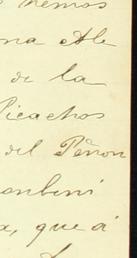 hemos
una Ale
de la
Picachos
del Peñon
ombini
que á